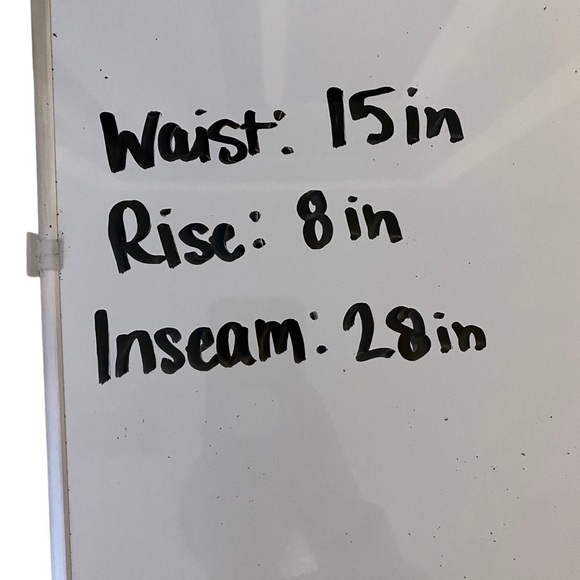 Waist: 15in
Rise: 8in
Inseam: 28in